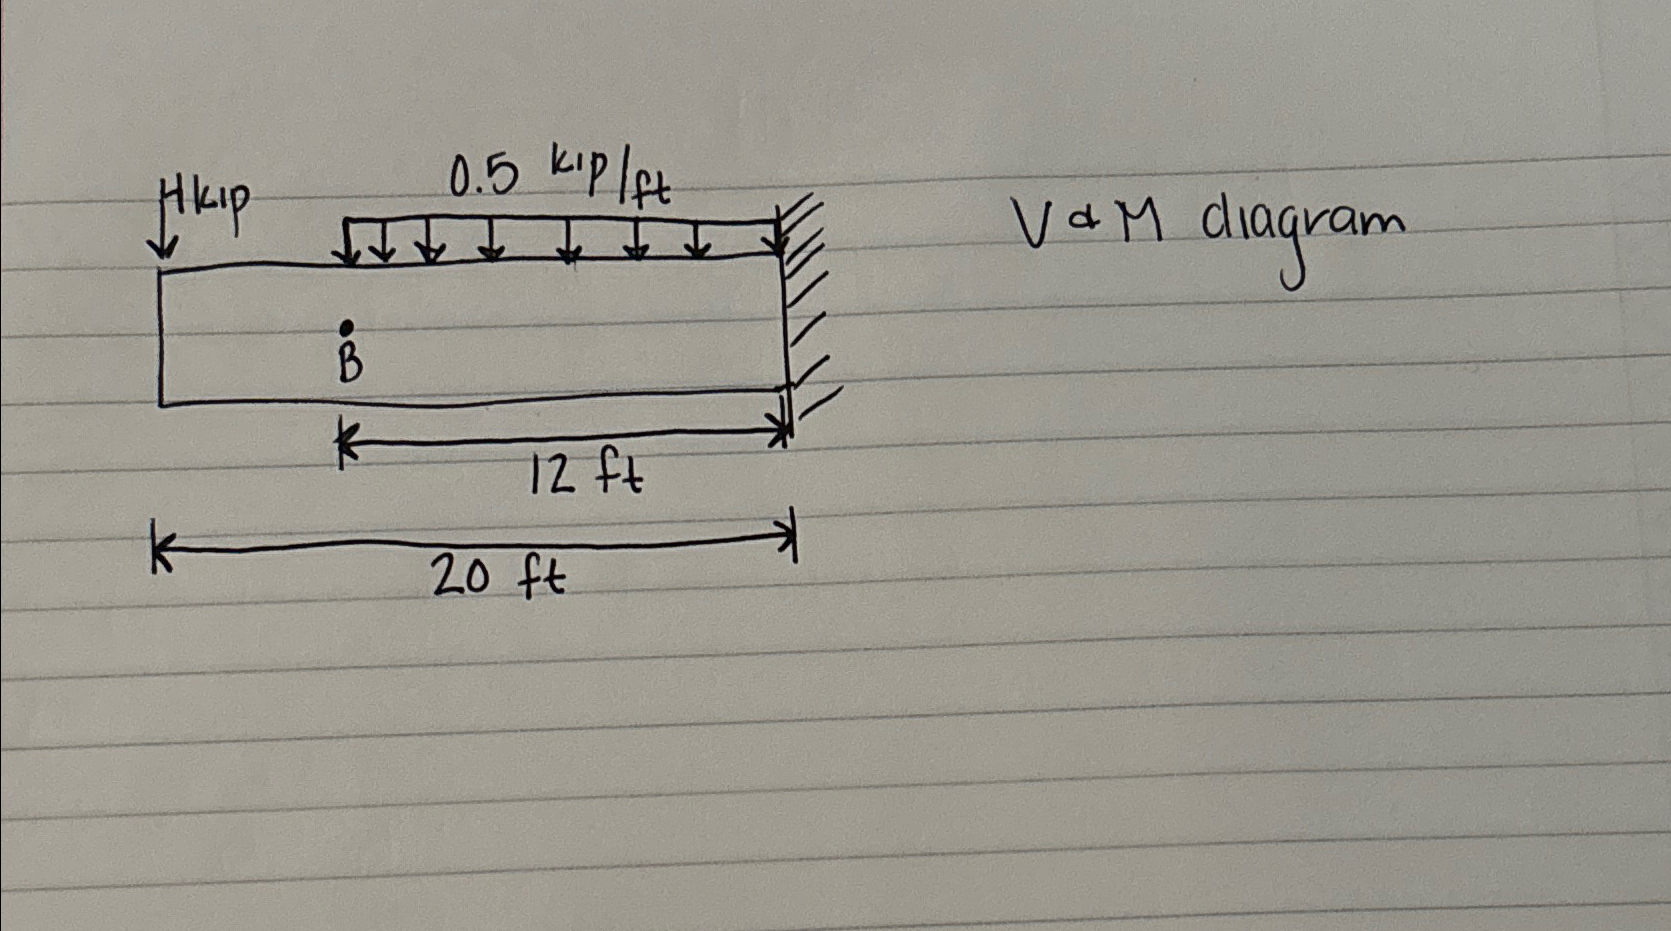 4kip
0.5 kip/ft
V & M diagram
B
12 ft
20 ft